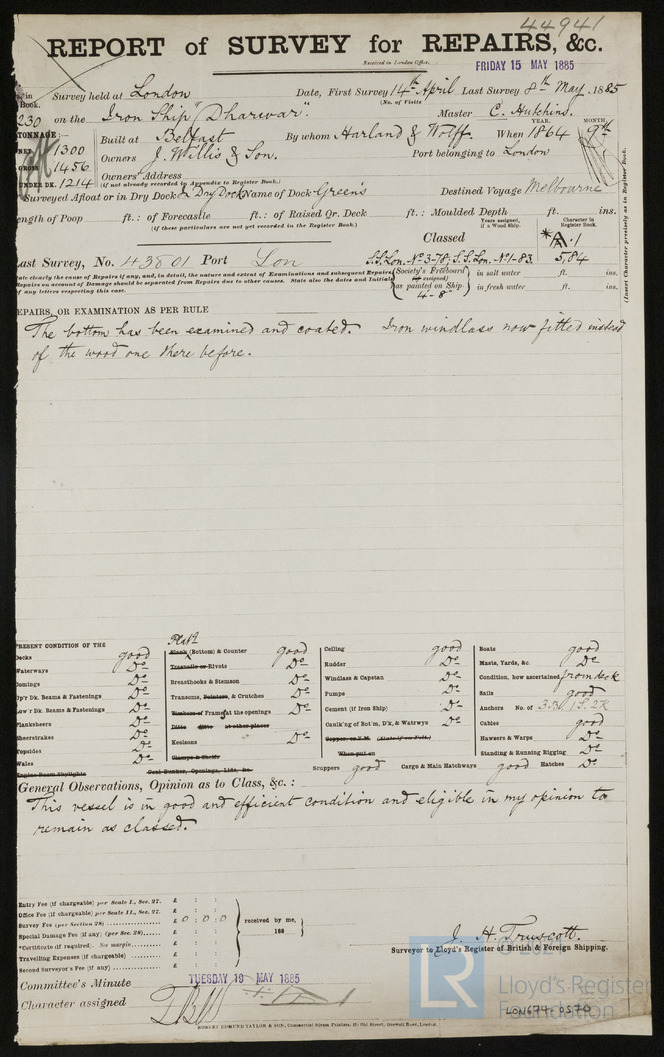 44941
REPORT of SURVEY for REPAIRS, &c.
Received in London Office,
FRIDAY 15 MAY 1885
Survey held at London Date, First Survey 14th April Last Survey 8th May 1885
(No. of Visits
Book.
230 on the Iron Ship "Dharwar". Master C. Hutchins.
TONNAGE:
YEAR. MONTH.
NET 1300 Built at Belfast By whom Harland & Wolff. When 1864 9th
GROSS 1456 Owners J. Willis & Son. Port belonging to London
UNDER DK. 1214 Owners' Address
(if not already recorded in Appendix to Register Book.)
Surveyed Afloat or in Dry Dock & Dry Dock Name of Dock Green's Destined Voyage Melbourne
ength of Poop ft.: of Forecastle ft.: of Raised Qr. Deck ft.: Moulded Depth ft. ins.
(if these particulars are not yet recorded in the Register Book.)
Years assigned, if a Wood Ship.
Character in Register Book.
Classed *A.1
Last Survey, No. 43801 Port Lon S.S. Lon. No 3-78; S.S. Lon. No 1-83. 5,84
tate clearly the cause of Repairs if any, and, in detail, the nature and extent of Examinations and subsequent Repairs.
Repairs on account of Damage should be separated from Repairs due to other causes. State also the dates and Initials
of any letters respecting this case.
(Society's Freeboard
(if assigned)
as painted on Ship
4-8"
in salt water ft. ins.
in fresh water ft. ins.
(Insert Character precisely as in Register Book.
EPAIRS, OR EXAMINATION AS PER RULE
The bottom has been examined and coated. Iron windlass now fitted instead
of the wood one there before.
PRESENT CONDITION OF THE
Decks good
Waterways Do
Comings Do
Up'r Dk. Beams & Fastenings Do
Low'r Dk. Beams & Fastenings Do
Planksheers Do
Sheerstrakes Do
Topsides Do
Wales Do
Engine Room Skylights
Plank (Bottom) & Counter good
Treenails or Rivets Do
Breasthooks & Stemson Do
Transoms, Pointers, & Crutches Do
Timbers of Frames at the openings Do
Ditto ditto at other places
Keelsons Do
Clamps & Shelfs
Coal Bunker, Openings, Lids, &c.
Ceiling good
Rudder Do
Windlass & Capstan Do
Pumps Do
Cement (if Iron Ship) Do
Caulk'ng of Bot'm, D'k, & Watrwys Do
Copper, or Y.M. (State if on Felt.)
When put on
Scuppers good Cargo & Main Hatchways good Hatches Do
Boats good
Masts, Yards, &c. Do
Condition, how ascertained from deck
Sails good
Anchors No. of 3B. 1S. 2K
Cables good
Hawsers & Warps Do
Standing & Running Rigging Do
General Observations, Opinion as to Class, &c. :
This vessel is in good and efficient condition and eligible in my opinion to
remain as classed.
Entry Fee (if chargeable) per Scale I., Sec. 27. £ : :
Office Fee (if chargeable) per Scale II., Sec. 27. £ : :
Survey Fee (per Section 28) £ 0 : 0 : 0
Special Damage Fee (if any) (per Sec. 28) £ : :
*Certificate (if required). See margin £ : :
Travelling Expenses (if chargeable) £ : :
Second Surveyor's Fee (if any) £ : :
received by me,
188
J. H. Truscott.
Surveyor to Lloyd's Register of British & Foreign Shipping.
Committee's Minute TUESDAY 19 MAY 1885
Character assigned
ROBERT EDMUND TAYLOR & SON, Commercial Steam Printers, 19, Old Street, Goswell Road, London.
LR
© 2021
Lloyd's Register
Foundation
LON674-0570